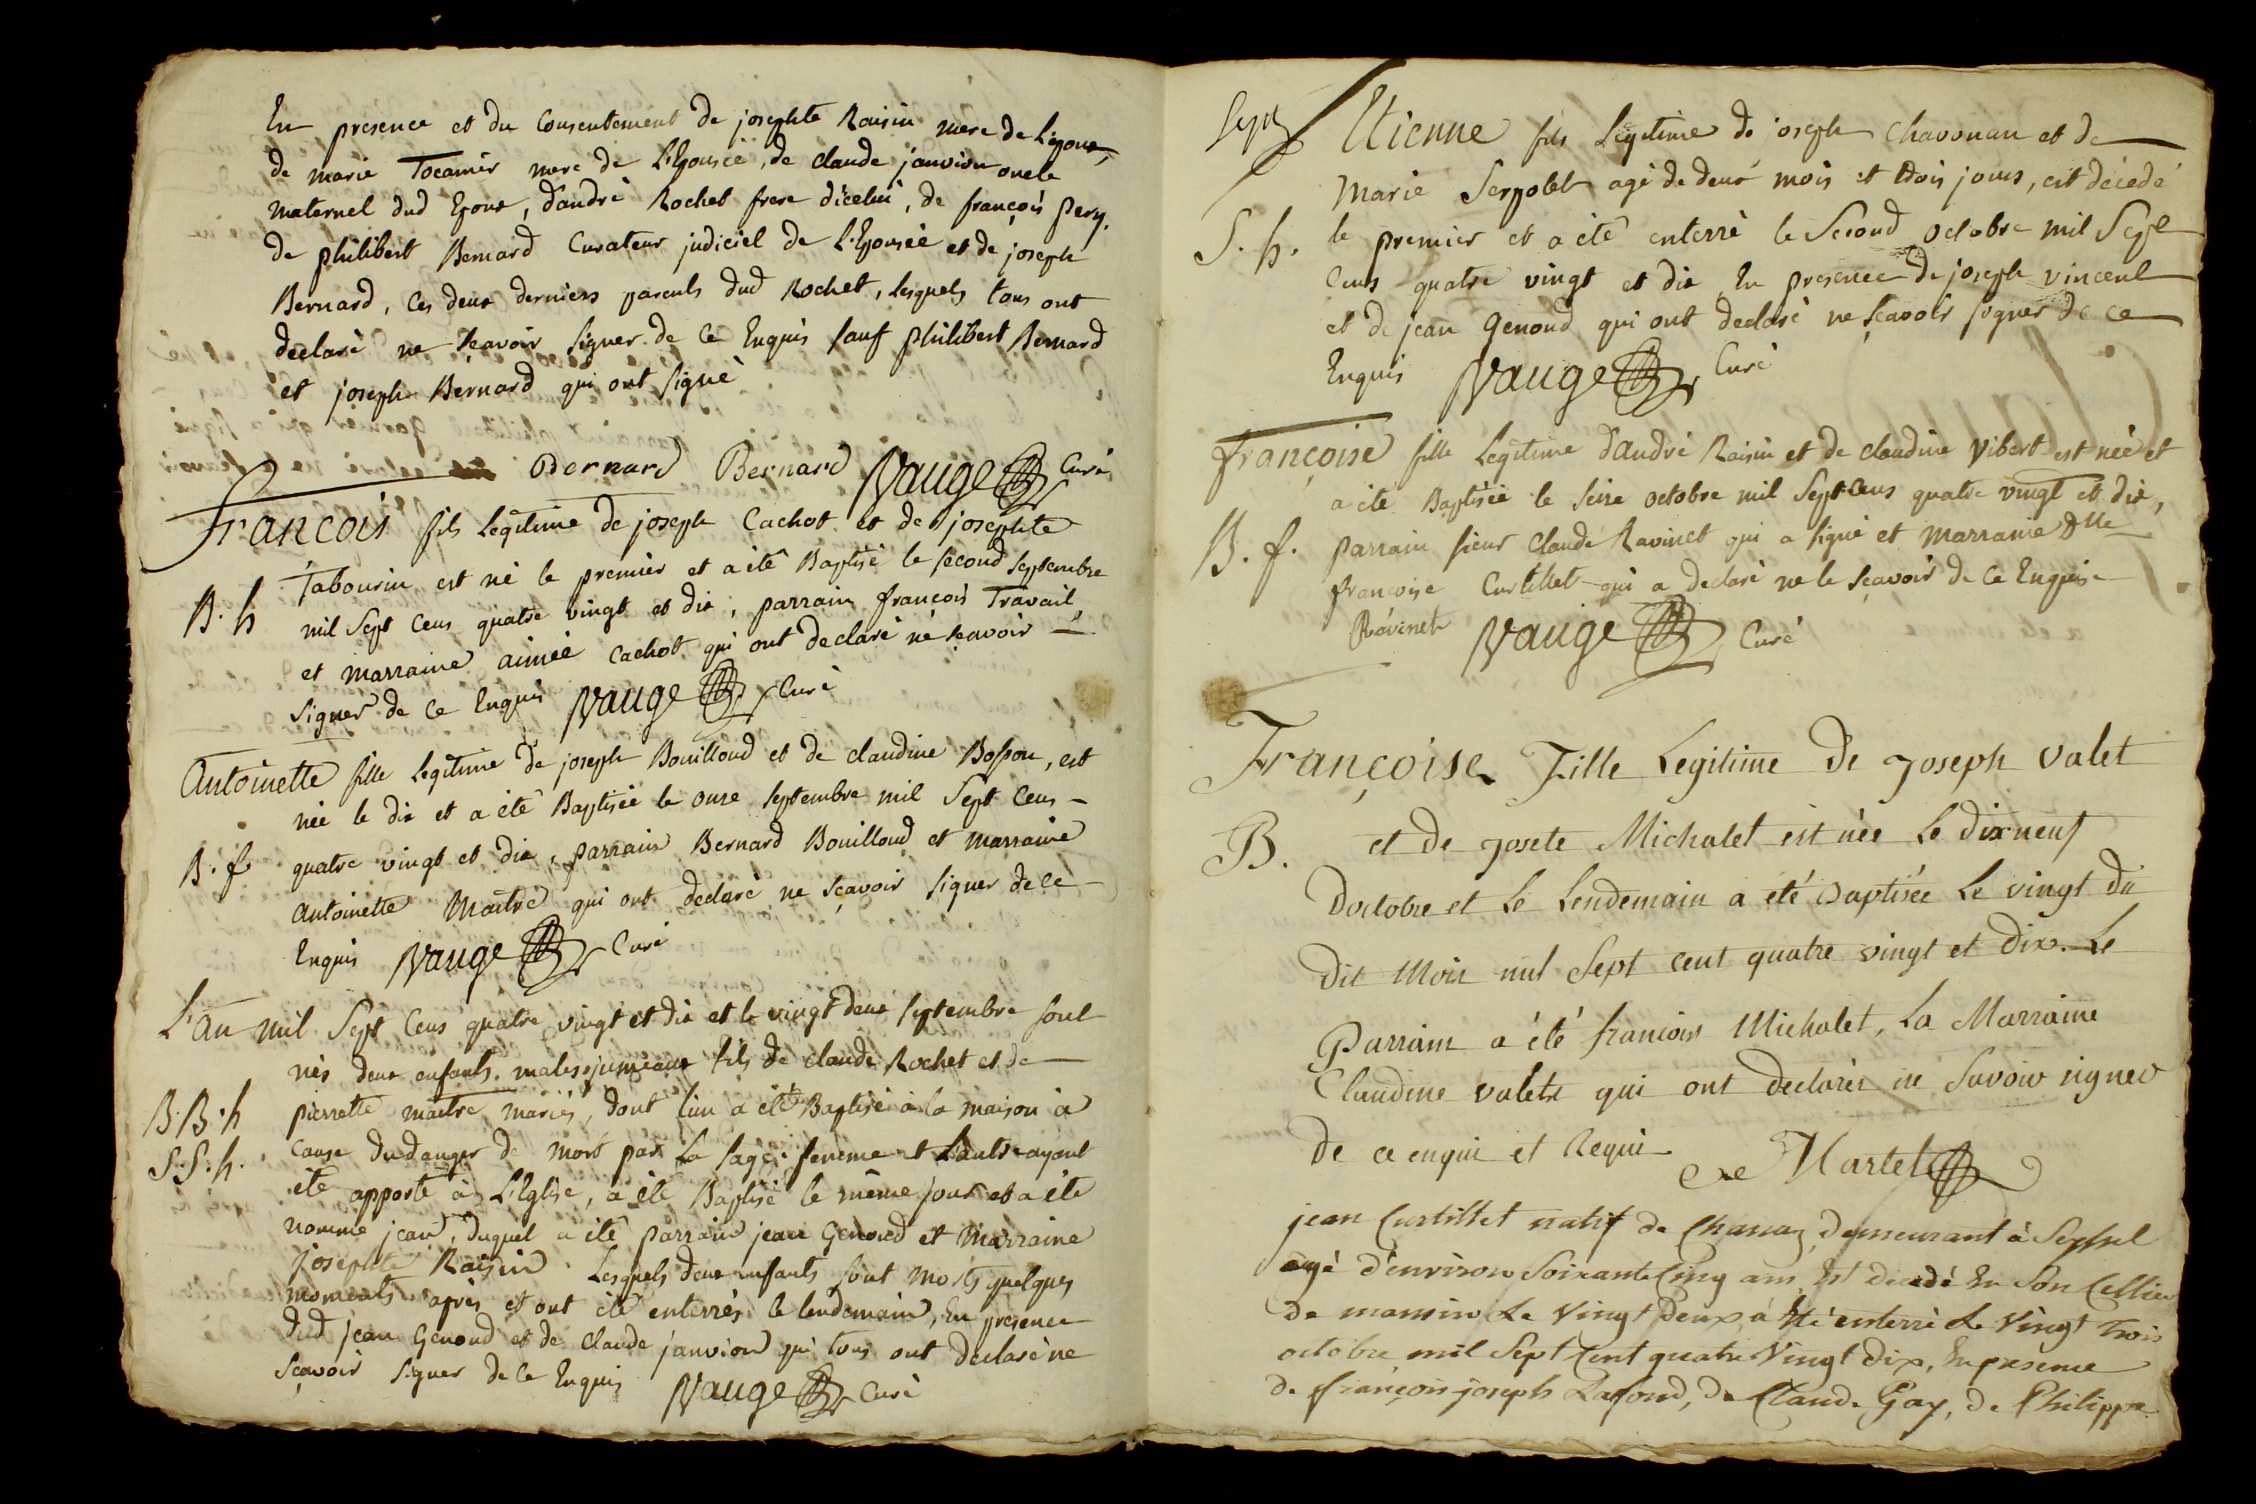 En presence et du Consentement de josephte Raisin mere de L'epoux,
de marie Tocanier mere de L'Epousée, de claude janvion oncle
maternel dud Epoux, d'andrè Rochet frere d'icelui, de françois pery,
de philibert Bernard Curateur judiciel de L'Epousée et de joseph
Bernard, ces deux derniers parents dud Rochet, lesquels tous ont
declarè ne sçavoir signer de ce Enquis sauf philibert Bernard
et joseph Bernard qui ont signè
Bernard Bernard Vauge Curé
François fils Legitime de joseph Cachot et de josephte
Tabourin est nè le premier et a étè Baptisè le second septembre
B. h mil Sept Cens quatre vingt et dix, parrain françois Travail,
et marraine aimée Cachot qui ont declarè nè sçavoir
signer de ce Enquis Vauge Curè
Antoinette fille Legitime de joseph Bouilloud et de claudine Bosson, est
née le dix et a étè Baptisée le onze septembre mil Sept Cens
B. f quatre vingt et dix, parrain Bernard Bouilloud et marraine
Antoinette Maitre qui ont declarè ne sçavoir signer de ce
Enquis Vauge Curè
L'an mil Sept Cens quatre vingt et dix et le vingt deux septembre sont
nès deux enfants males jumeaux fils de claude Rochet et de
B. B. h pierrette maitre mariés, dont l'un a étè Baptisé à la maison à
S. S. h. Cause du danger de mort par La sage femme et L'autre ayant
étè apportè à L'Eglise, a étè Baptisè le même jour et a étè
nommè jean, duquel a étè parrain jean Genoud et Marraine
josephte Raisin. Lesquels deux enfants sont morts quelques
moments après et ont étè enterrès le lendemain, En presence
dud jean Genoud et de Claude janvion qui tous ont declarè ne
sçavoir signer de ce Enquis Vauge Curè
Sept Etienne fils Legitime de joseph Chavonan et de
Marie Serpolet agè de deux mois et trois jours, est décèdé
S. h. le premier et a étè enterrè le Second octobre mil Sept
Cens quatre vingt et dix En presence de joseph vincent
et de jean Genoud qui ont declarè ne sçavoir signer de ce
Enquis Vauge Curè
françoise fille Legitime d'andrè Raisin et de claudine Vibert est née et
a étè Baptisée le seize octobre mil Sept Cens quatre vingt et dix,
B. f. parrain sieur Claude Ravinet qui a signè et marraine dlle
françoise Curtillet qui a declarè ne le sçavoir de ce Enquise
Ravinet Vauge Curè
Françoise Fille Legitime De Joseph Valet
B. et De Josete Michalet est née Le dix neuf
Doctobre et Le Lendemain a été Baptisée Le vingt du
Dit Mois mil Sept cent quatre vingt et Dix. Le
Parrain a été francois Michalet, La Marraine
Claudine Valete qui ont declarés ne Savoir signer
De ce enquis et Requis Martel
jean Curtillet natif de Chanaz, demeurant à Seyssel
agè d'environ Soixante Cinq ans, Est decedé En Son Cellier
de mamin Le Vingt Deux, à Eté enterrè Le Vingt Trois
octobre mil Sept Cent quatre Vingt Dix, En presence
de françois joseph Lafond, de Claude Gay, de Philippe